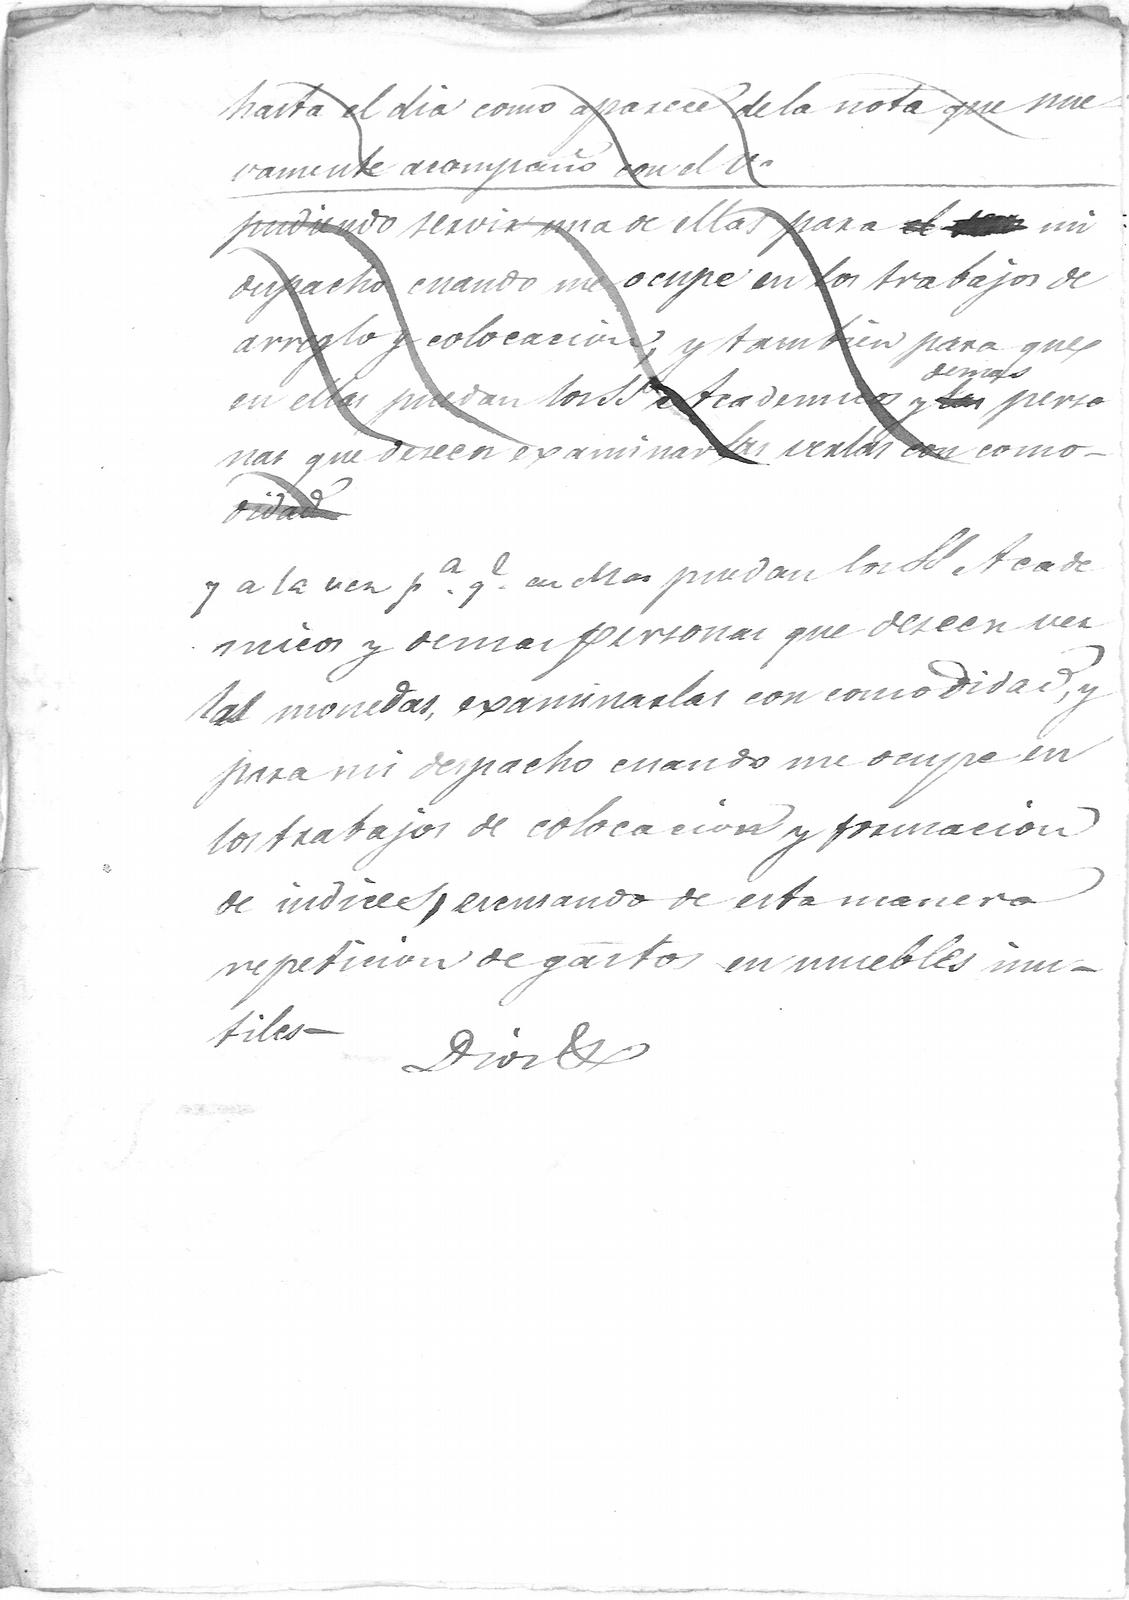 hasta el dia como aparece de la nota que nue
vamente acompaño con el
pudiendo servir una de ellas para el mi
despacho cuando me ocupe en los trabajos de
arreglo y colocacion, y tambien para que
demas
en ellas puedan los SS Academicos y las perso
nas que deseen examinarlas verlas con como-
didad
y a la vez pa. qe. en ellas puedan los SS Acade
micos y demas personas que deseen ver
las monedas, examinarlas con comodidad, y
para mi despacho cuando me ocupe en
los trabajos de colocacion y formacion
de indices, escusando de esta manera
repeticion de gastos en muebles inu-
tiles-
Dios &